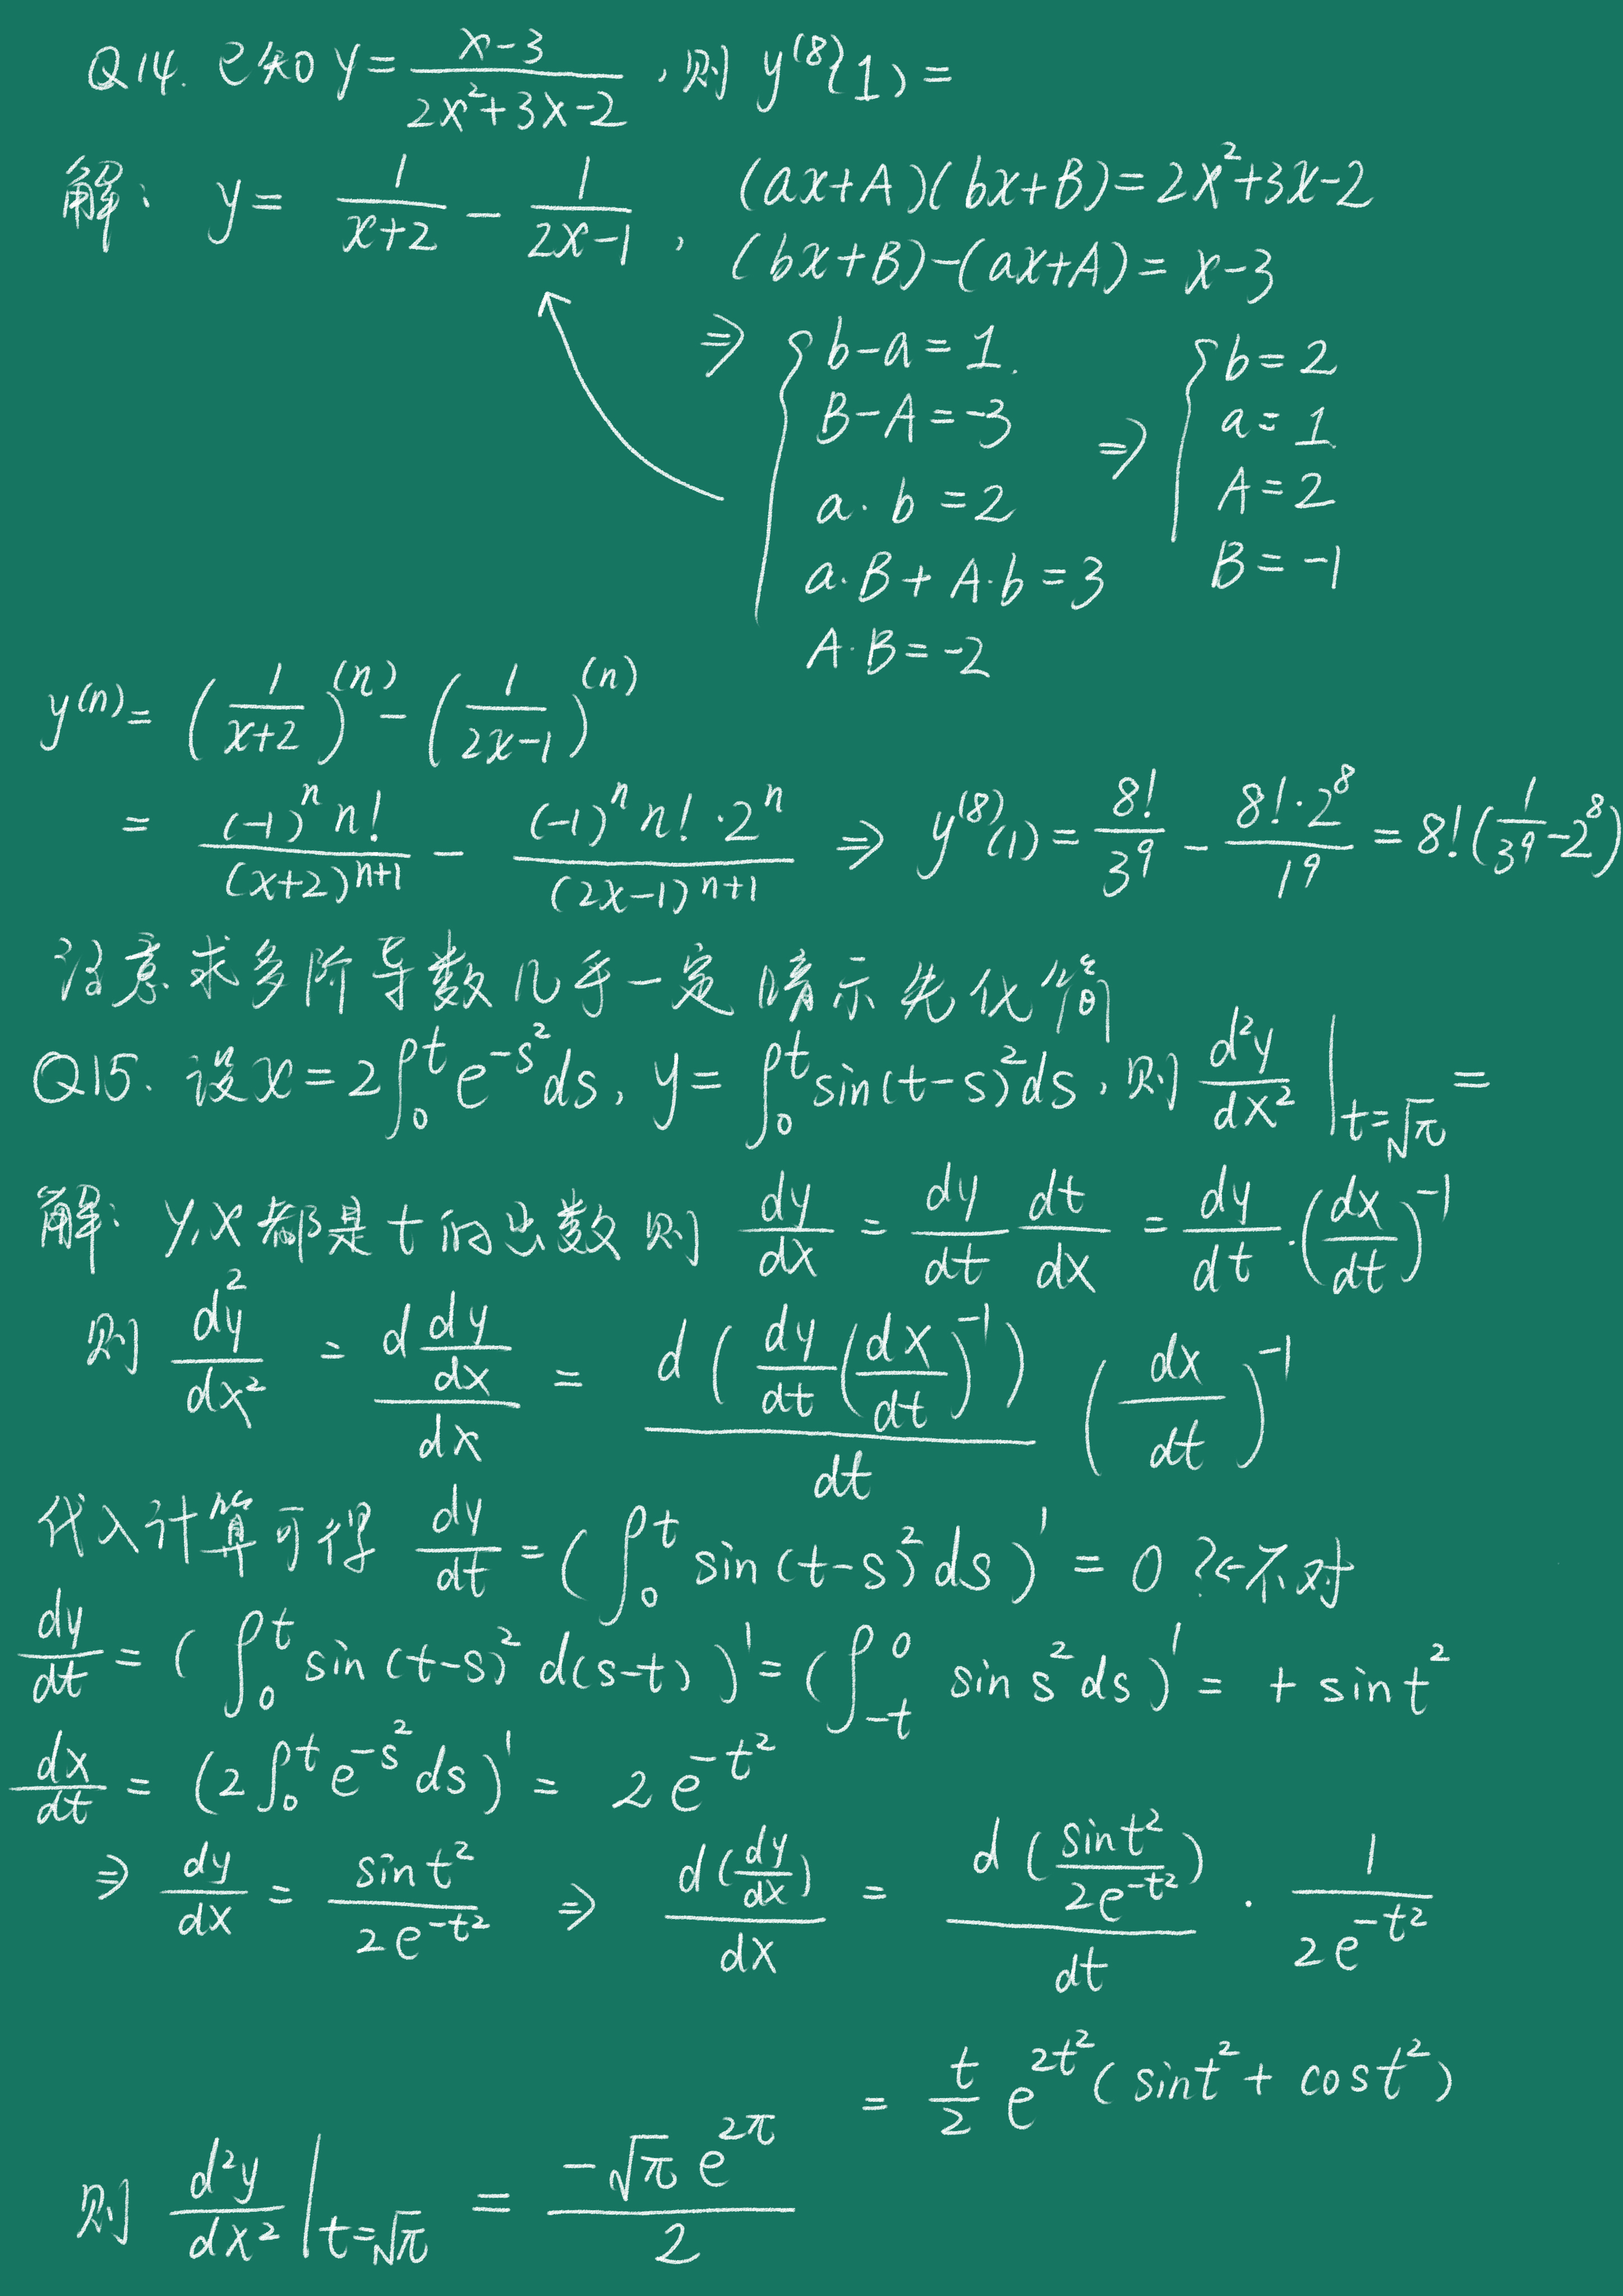 Q14. 已知 y = (x-3)/(2x²+3x-2), 则 y⁽⁸⁾(1) =
解: y = 1/(x+2) - 1/(2x-1), (ax+A)(bx+B) = 2x²+3x-2
(bx+B)-(ax+A) = x-3
⇒ { b-a = 1. { b = 2
B-A = -3 ⇒ a = 1
a·b = 2 A = 2
a·B + A·b = 3 B = -1
A·B = -2
y⁽ⁿ⁾ = (1/(x+2))⁽ⁿ⁾ - (1/(2x-1))⁽ⁿ⁾
= (-1)ⁿ n!/(x+2)ⁿ⁺¹ - (-1)ⁿ n!·2ⁿ/(2x-1)ⁿ⁺¹ ⇒ y⁽⁸⁾(1) = 8!/3⁹ - 8!·2⁸/1⁹ = 8!(1/3⁹ - 2⁸)
注意求多阶导数几乎一定暗示先化简
Q15. 设 x = 2∫₀ᵗ e^(-s²) ds, y = ∫₀ᵗ sin(t-s)² ds, 则 d²y/dx² |t=√π =
解: y,x 都是 t 的函数 则 dy/dx = dy/dt dt/dx = dy/dt·(dx/dt)⁻¹
则 d²y/dx² = d(dy/dx)/dx = d(dy/dt(dx/dt)⁻¹)/dt (dx/dt)⁻¹
代入计算可得 dy/dt = (∫₀ᵗ sin(t-s)² ds)' = 0 ?←不对
dy/dt = (∫₀ᵗ sin(t-s)² d(s-t))' = (∫₋ₜ⁰ sin s² ds)' = + sin t²
dx/dt = (2∫₀ᵗ e^(-s²) ds)' = 2e^(-t²)
⇒ dy/dx = sin t²/(2e^(-t²)) ⇒ d(dy/dx)/dx = d(sin t²/(2e^(-t²)))/dt · 1/(2e^(-t²))
= t/2 e^(2t²) (sin t² + cos t²)
则 d²y/dx² |t=√π = -√π e^(2π)/2